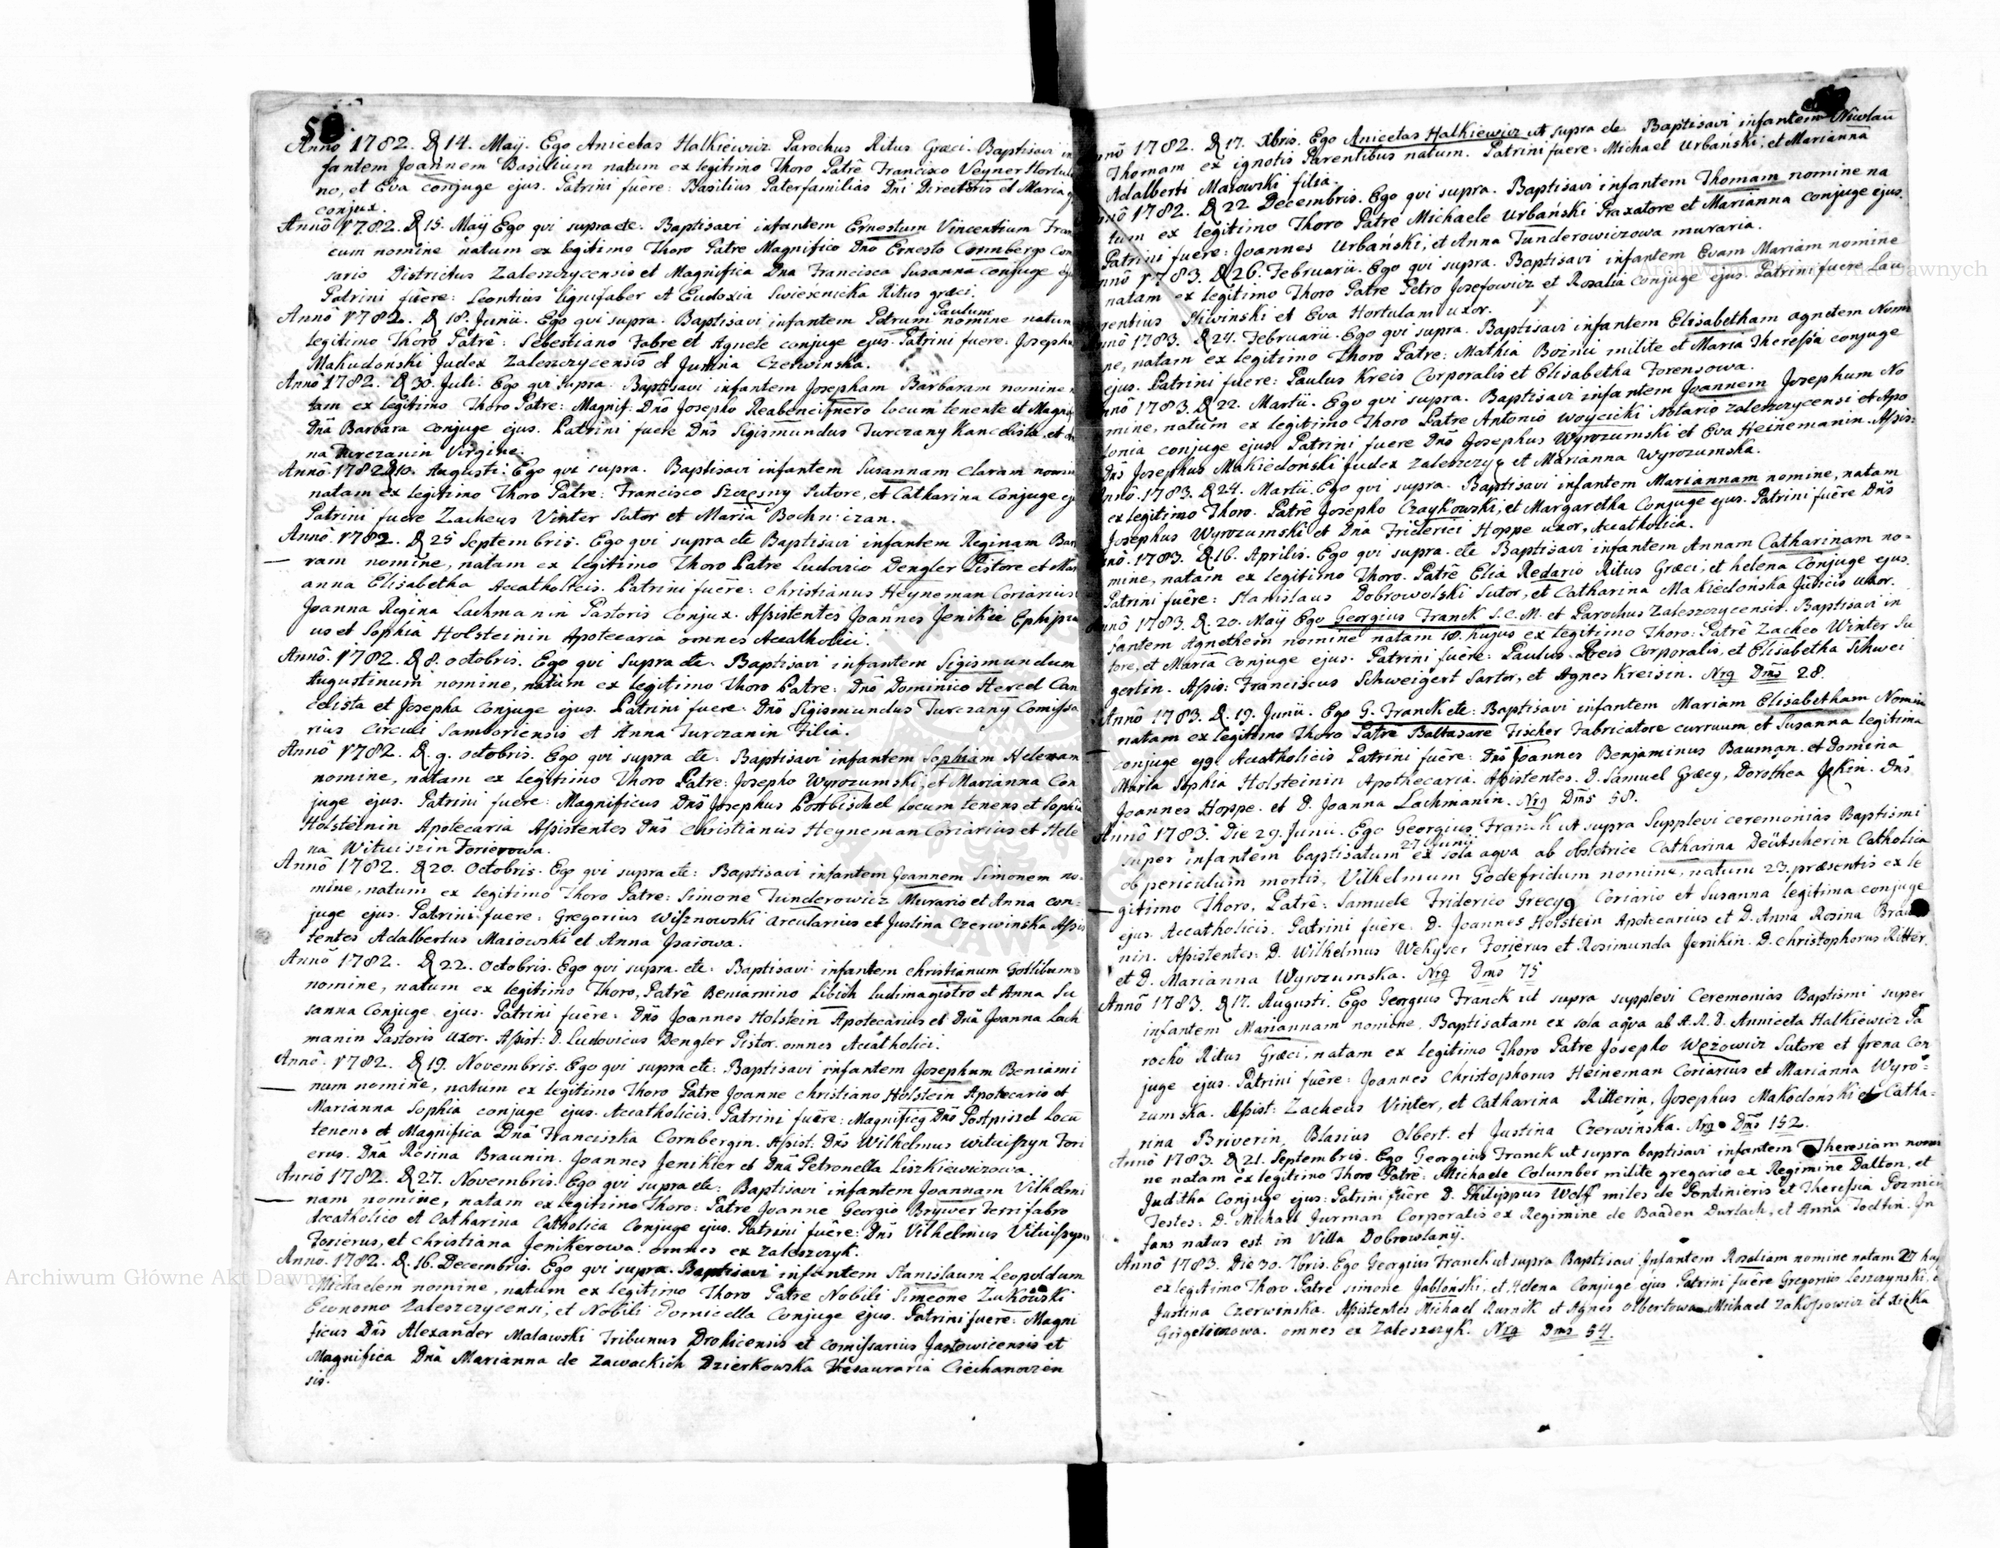 Anno 1782. D 14. Maÿ. Ego Anicetas Halkiewicz Parochus Ritus Græci. Baptisavi in
fantem Joannem Basilium natum ex legitimo Thoro Patrê Francisco Veyner Hortula
no, et Eva conjuge ejus. Patrini fuêre: Basilius Paterfamilias Dni Directoris et Maria
conjux.
Annô 1782. D 15. Maÿ Ego qui supra etc. Baptisavi infantem Ernestum Vincentium Fran
cum nomine natum ex legitimo Thoro Patre Magnifico Dno Ernesto Cornberg Com
sario Districtus Zaleszczycensis et Magnifica Dna Francisca Susanna conjuge ejus
Patrini fuêre: Leontius Lignifaber et Eudoxia Swieścnicka Ritus græci.
Paulum
Annô 1782. D 18. Junii. Ego qui supra. Baptisavi infantem Petrum nomine natum
legitimo Thoro Patrê: Sebestiano Fabre et Agnete conjuge ejus. Patrini fuere: Josephus
Makudoński Judex Zaleszczycensis et Justina Czerwinska.
Annô 1782. D 30. Juli. Ego qui supra. Baptisavi infantem Josepham Barbaram nomine
tam ex legitimo Thoro Patre: Magnif: Dnô Josepho Reabeneifnero locum tenente et Magni
Dnâ Barbara conjuge ejus. Patrini fuere Dnŝ Sigismundus Turczany Kancelista, et
na Turczanin Virgine.
Annô 1782 D 10. Augusti. Ego qui supra. Baptisavi infantem Susannam Claram nomin
natam ex legitimo Thoro Patre: Francisco Szczęsny Sutore, et Catharina Conjuge ej
Patrini fuere Zacheus Vinter Sutor et Maria
Annô 1782. D 25 Septembris. Ego qui supra etc Baptisavi infantem Reginam Bar
ram nomine, natam ex legitimo Thoro Patre Ludovico Dengler Pistore et Mari
anna Elisabetha Accatholicis. Patrini fuêre: Christianus Heyneman Coriarius
Joanna Regina Lachmanin Pastoris Conjux. Assistentes Joannes Jenikie Ephipia
us et Sophia Holsteinin Apotecaria omnes Accatholici.
Annô. 1782. D 8. octobris. Ego qui Supra etc. Baptisavi infantem Sigismundum
Augustinum nomine, natum ex legitimo Thoro Patre: Dnô Dominico Hercel Can
celista et Josepha Conjuge ejus. Patrini fuere: Dnŝ Sigismundus Turczany Comissa
rius Circuli Samboriensis et Anna Turczanin Filia.
Annô 1782. D. 9. octobris. Ego qui supra etc. Baptisavi infantem Sophiam Helenam
nomine, natam ex legitimo Thoro Patre: Josepho Wyrozumski, et Marianna Con
juge ejus. Patrini fuere: Magnificus Dnŝ Josephus Postbischel Locum tenens et Sophia
Holsteinin Apotecaria Assistentes Dnŝ Christianus Heyneman Coriarius et Hele
na Wituiszin Forierowa.
Annô 1782. D 20. Octobris. Ego qui supra etc: Baptisavi infantem Joannem Simonem no
mine, natum ex legitimo Thoro Patre: Simone Tunderowicz Murario et Anna con
juge ejus. Patrini fuere: Gregorius Wisznowski arcularius et Justina Czerwinska Assis
tentes Adalbertus Maiowski et Anna
Annô 1782. D 22. Octobris. Ego qui supra. etc: Baptisavi infantem Christianum Gottlibum
nomine, natum ex legitimo Thoro, Patrê Beniamino Libich ludimagistro et Anna Su
sanna Conjuge ejus. Patrini fuêre: Dnŝ Joannes Holstein Apotecarius et Dnâ Joanna Lach
manin Pastoris uxor. Assist: D. Ludovicus Dengler Pistor. omnes Accatholici.
Annô. 1782. D 19. Novembris. Ego qui supra etc: Baptisavi infantem Josephum Beniami
num nomine, natum ex legitimo Thoro Patre Joanne Christiano Holstein Apotecario et
Marianna Sophia conjuge ejus. Accatholicis. Patrini fuêre: Magnificq Dnŝ Postpissel Locu
tenens et Magnifica Dnâ Franciszka Cornbergin. Assist: Dnŝ Wilhelmus Wituiszyn Fori
erus. Dnâ Rosina Braunin. Joannes Jenikier et Dnâ Petronella Liszkiewiczowa.
Annô 1782. D 27. Novembris. Ego qui supra etc: Baptisavi infantem Joannam Vilhelmi
nam nomine, natam ex legitimo Thoro: Patre Joanne Georgio Bryver Ferri fabro
Accatholico et Catharina Catholica Conjuge ejus. Patrini fuêre: Dnŝ Vilhelmus Vituiszyn
Forierus, et Christiana Jenikerowa. omnes ex Zaleszczyk.
Annô. 1782. D. 16. Decembris. Ego qui supra. Baptisavi infantem Stanislaum Leopoldum
Michaelem nomine, natum ex legitimo Thoro Patre Nobili Simeone Zukowski
Economo Zaleszczycensi, et Nobili Domicella Conjuge ejus. Patrini fuere: Magni
ficus Dnŝ Alexander Malawski Tribunus Drohicensis et comissarius Jastowicensis et
Magnifica Dnâ Marianna de Zawackich Dzierkowska Thesauraria Ciechanovien
sis.
Annô 1782. D 17. Xbris. Ego Anicetas Halkiewicz ut supra etc. Baptisavi infantem Nicolau
Thomam ex ignotis Parentibus natum. Patrini fuere: Michael Urbański, et Marianna
Adalberti Maiowski filia.
Annô 1782. D 22 Decembris. Ego qui supra. Baptisavi infantem Thomam nomine na
tum ex legitimo Thoro Patre Michaele Urbański Praxatore et Marianna conjuge ejus.
Patrini fuere: Joannes Urbański, et Anna Tunderowiczowa muraria.
Annô 1783. D 26. Februarii. Ego qui supra. Baptisavi infantem Evam Mariam nomine
natam ex legitimo Thoro Patre Petro Josefowicz et Rosalia Conjuge ejus. Patrini fuere Lau
rentius Sliwinski et Eva Hortulani uxor.
Annô 1783. D 24. Februarii. Ego qui supra. Baptisavi infantem Elisabetham agnetem Nomi
ne, natam ex legitimo Thoro Patre: Mathia milite et Maria Theressia conjuge
ejus. Patrini fuere: Paulus Kreis Corporalis et Elisabetha Forensowa.
Annô 1783. D 22. Martii. Ego qui supra. Baptisavi infantem Joannem Josephum No
mine, natum ex legitimo Thoro Patre Antonio Woycicki Notario Zaleszczycensi et Apo
lonia conjuge ejus. Patrini fuere Dnô Josephus Wyrozumski et Eva Heinemanin. Assis:
Dnŝ Josephus Makiedonski Judex Zaleszczyc et Marianna Wyrozumska.
Annô. 1783. D 24. Martii. Ego qui supra. Baptisavi infantem Mariannam nomine, natam
ex legitimo Thoro. Patrê Josepho Czaykowski, et Margaretha Conjuge ejus. Patrini fuêre Dnŝ
Josephus Wyrozumski et Dnâ Friderici Hoppe uxor, Accatholica.
Annô. 1783. D 16. Aprilis. Ego qui supra. etc Baptisavi infantem Annam Catharinam no-
mine, natam ex legitimo Thoro. Patrê Elia Redario Ritus Græci, et helena Conjuge ejus.
Patrini fuêre: Stanislaus Dobrowolski Sutor, et Catharina Makiedońska Judicis uxor.
Annô 1783. D. 20. Maÿ Ego Georgius Franck S.C.M. et Parochus Zaleszczycensis. Baptisavi in
fantem Agnethem nomine natam 18. hujus ex legitimo Thoro. Patrê Zacheo Winter Su
tore, et Maria Conjuge ejus. Patrini fuêre: Paulus Kreis Corporalis, et Elisabetha Schwei
gertin. Assis: Franciscus Schweigert Sartor, et Agnes Kreisin. Nrq Dms 28.
Annô 1783. D. 19. Junii. Ego G. Franck etc: Baptisavi infantem Mariam Elisabetham Nomin
natam ex legitimo Thoro Patre Baltasare Fischer Fabricatore curruum et Susanna legitima
conjuge ejq. Accatholicis Patrini fuêre. Dnŝ Joannes Benjaminus Bauman. et Domina
Maria Sophia Holsteinin Apothecaria. Assistentes. D. Samuel Græcy, Dorothea Jekin. Dnŝ
Joannes Hoppe. et D. Joanna Lachmanin. Nrq Dms 58.
Annô 1783. Die 29. Junii. Ego Georgius Franck ut supra Supplevi ceremonias Baptismi
27 Junii
super infantem baptisatum ex sola aqva ab obstetrice Catharina Deütscherin Catholica
ob periculum mortis, Vilhelmum Godefridum nomine, natum 23. præsentis ex le
gitimo Thoro, Patrê: Samuele Friderico Grecyq Coriario et Susanna legitima conjuge
ejus. Accatholicis. Patrini fuêre. D. Joannes Holstein Apotecarius et D. Anna Rosina Brau
nin. Assistentes: D. Wilhelmus Wehyser Forierus et Rosimunda Jenikin. D. Christophorus Ritter
et D. Marianna Wyrozumska. Nrq Dms 75
Annô 1783. D 17. Augusti. Ego Georgius Franck ut supra supplevi Ceremonias Baptismi super
infantem Mariannam nomine. Baptisatam ex sola aqva ab A.R.D. Anniceta Halkiewicz Pa
rocho Ritus Græci, natam ex legitimo Thoro Patre Josepho Wężowicz Sutore et Irena Con
juge ejus. Patrini fuêre: Joannes Christophorus Heineman Coriarius et Marianna Wyro-
zumska. Assist: Zacheus Vinter, et Catharina Ritterin, Josephus Makodoński et Catha-
rina Briverin, Blasius Olbert. et Justina Czerwińska. Nrq Dms 152.
Annô 1783. D 21. Septembris. Ego Georgius Franck ut supra baptisavi infantem Theresiam nomi
ne natam ex legitimo Thoro Patrê: Michaele Columber milite gregario ex Regimine Dalton, et
Juditha Conjuge ejus: Patrini fuêre D. Philippus Wolf miles de Pontinieris et Theressia
Testes: D. Michael Jurman Corporalis ex Regimine de Baaden Durlach, et Anna Todtin. In
fans natus est in Villa Dobrowlany.
Annô 1783. Die 30. 7bris. Ego Georgius Franck ut supra Baptisavi Infantem Rosaliam nomine natam 27 huj
ex legitimo Thoro Patrê Simone Jabloński, et Helena Conjuge ejus Patrini fuêre Gregorius Leszczynski, e
Justina Czerwinska. Assistentes Michael Kurnik et Agnes Olbertowa Michael Zakossowicz et
omnes ex Zaleszczyk. Nrq Dms 54.
Archiwum Główne Akt Dawnych
Archiwum Główne Akt Dawnych